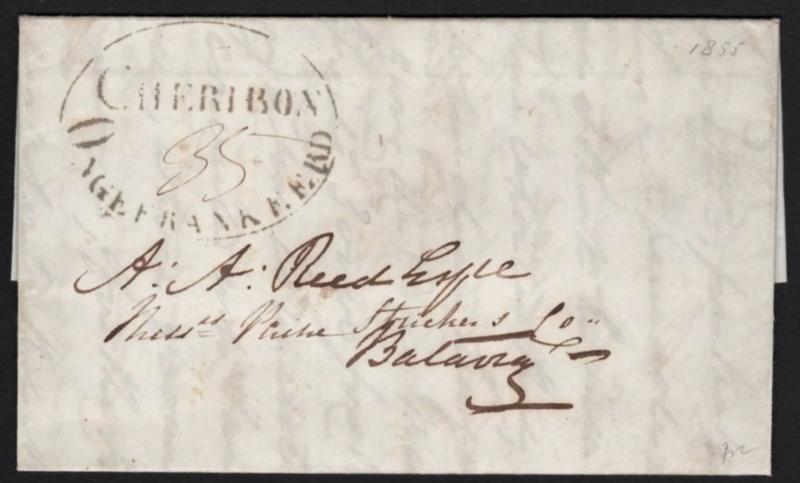 1855
CHERIBON
35
ONGEFRANKEERD
A: A: Reed Esqre
Messrs Paine Stricker & Co
Batavia